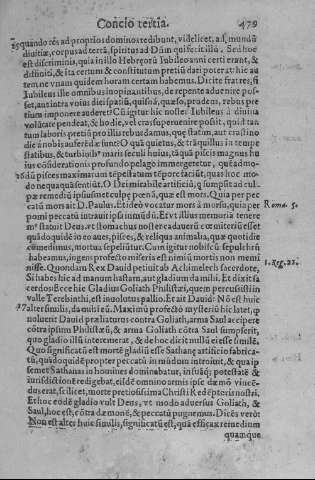 Concio tertia. 479
quando res ad proprios dominos redibunt, videlicet, ad mundũ
diuitiæ, corpus ad terrã, spiritus ad Dũm qui fecit illũ. Sed hoc
est discriminis, quia in illo Hebręorũ Iubileo anni certi erant, &
diffiniti, & ita certum & constitutum pretiũ dari poterat: hic au
tem ne vnam quidem horam certam habemus. Dicite fratres, si
Iubileus ille omnibus inopinantibus, de repente aduenire pos-
set, aut intra vnius diei spatiũ, quis nã, quæso, prudens, rebus pre
tium imponere auderet? Cũ igitur hic noster Iubileus à diuina
volũtate pendeat, & hodie, vel cras superuenire possit, quid tan
tum laboris pretiũ pro illis rebus damus, quę statim, aut crastino
die à nobis auferēdæ sunt? O quã quietus, & trãquillus in tempe
statibus, & turbinib⁹ maris seculi huius, tã quã piscis magnus hu
ius cõsiderationis profundo pelago immergeretur, quẽadmo-
dũ pisces maximarum tẽpestatum tẽpore faciũt, quas hoc mo-
do nequaquã sentiũt. O Dei mirabile artificiũ, q̃ sumpsit ad cul-
pæ remediũ ipsius met culpę pœnã, quæ est mors. Quia per pec
catũ mors ait D. Paulus. Et ideò vocatur mors à morsu, quia per
Rom. 5.
pomi peccatũ intrauit ipsi in mũdũ. Et vt illius memoria tenere
mr̃ statuit Deus, vt stomachus noster cadauerũ cœmiterũ esset
quãdoquidẽ in eo aues, pisces, & reliqua animalia, quæ quotidie
comedimus, mortua sepeliũtur. Cum igitur nobiscũ sepulchrũ
habeamus, ingens profecto miseria est nimiũ mortis non memi
nisse. Quondam Rex Dauid petiuit ab Achimelech sacerdote,
1. Reg. 21.
Si habes hic ad manum hastam, aut gladium da mihi. Et dixit sa
cerdos: Ecce hic Gladius Goliath Philistæi, quem percussisti in
valle Terebinthi, est inuolutus pallio. Et ait Dauid: Nõ est huic
alter similis, da mihi eũ. Maximũ profectò mysteriũ hic latet, q̃
noluerit Dauid præliaturus contra Goliath, arma Saul accipere
cõtra ipsum Philistæũ, & arma Goliath cõtra Saul sumpserit,
quo gladio illũ intenerat, & de hoc dicit nullũ ei esse simile.
Quo significatũ est mortē gladiũ esse Sathanę artificio fabrica-
tũ, quãdoquidẽ propter peccatũ in mũdum introiuit, & qua ip
semet Sathanas in homines dominabatur, in suãq; potestatē &
iurisdictionē redigebat, eisdẽ omnino armis ipse dæmõ vincẽ-
dus erat, scilicet, morte pretiosissima Christi Redẽptoris nostri.
Et hoc eodẽ gladio vult Deus, vt modo aduersus Goliath, &
Saul, hoc est, cõtra dæmonē, & peccatũ pugnemus. Dices verò:
Non est alter huic similis, significatũ est, quã efficax remedium
quamque